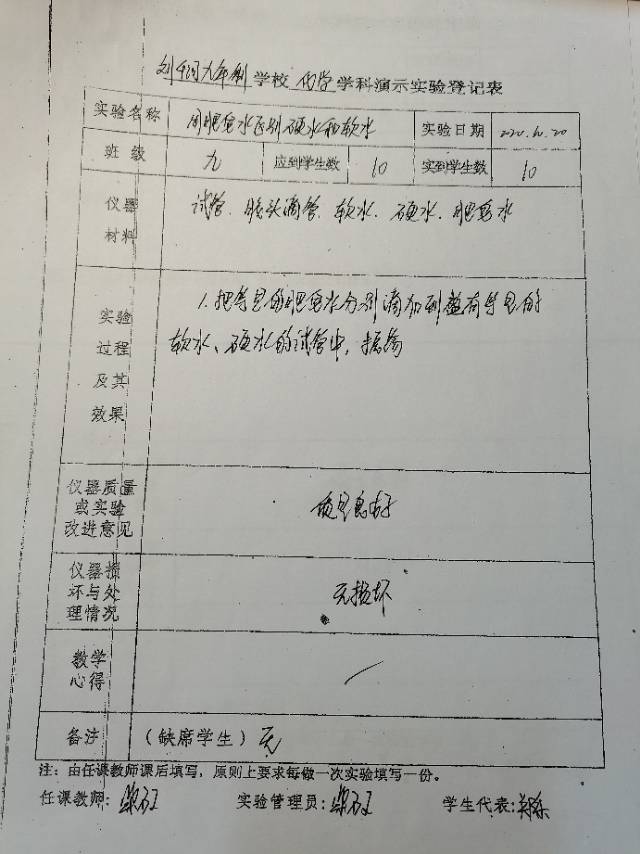 九年制学校 化学学科演示实验登记表
实验名称 用肥皂水区别硬水和软水 实验日期
班级 九 应到学生数 10 实到学生数 10
仪器
材料
试管、胶头滴管、软水、硬水、肥皂水
实验
过程
及其
效果
1.把等量的肥皂水分别滴加到盛有等量的
软水、硬水的试管中，振荡
仪器质量
或实验
改进意见
质量良好
仪器损
坏与处
理情况
无损坏
教学
心得
备注 (缺席学生) 无
注：由任课教师课后填写，原则上要求每做一次实验填写一份。
任课教师： 实验管理员： 学生代表：